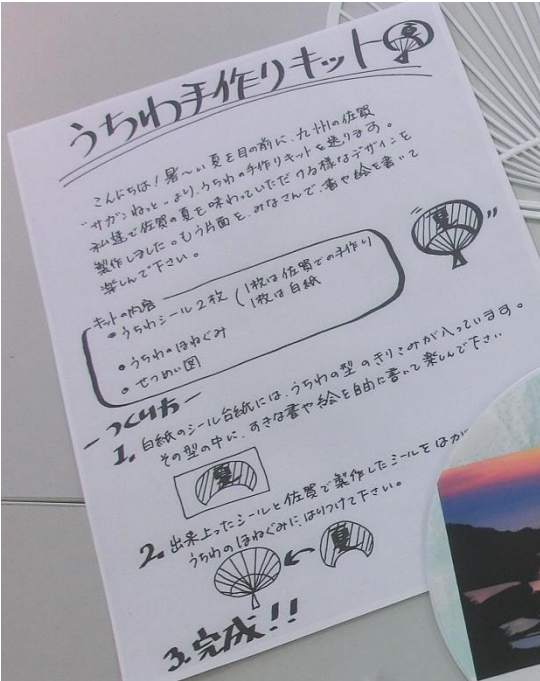 うちわ手作りキット
こんにちは!暑〜い夏を目の前に、九州の佐賀
"サガンねっと"より、うちわの手作りキットを送ります。
私達で佐賀の夏を味わっていただける様なデザインを
製作しました。もう片面を、みなさんで、書や絵を書いて
楽しんで下さい。
夏
キットの内容
・うちわシール2枚(1枚は佐賀での手作り
1枚は白紙
・うちわのほねぐみ
・せつめい図
-つくり方-
1. 白紙のシール台紙には、うちわの型のきりこみが入っています。
その型の中に、すきな書や絵を自由に書いて楽しんで下さい
夏
2. 出来上ったシールと佐賀で製作したシールをはが
うちわのほねぐみに、はりつけて下さい。
夏
3. 完成!!